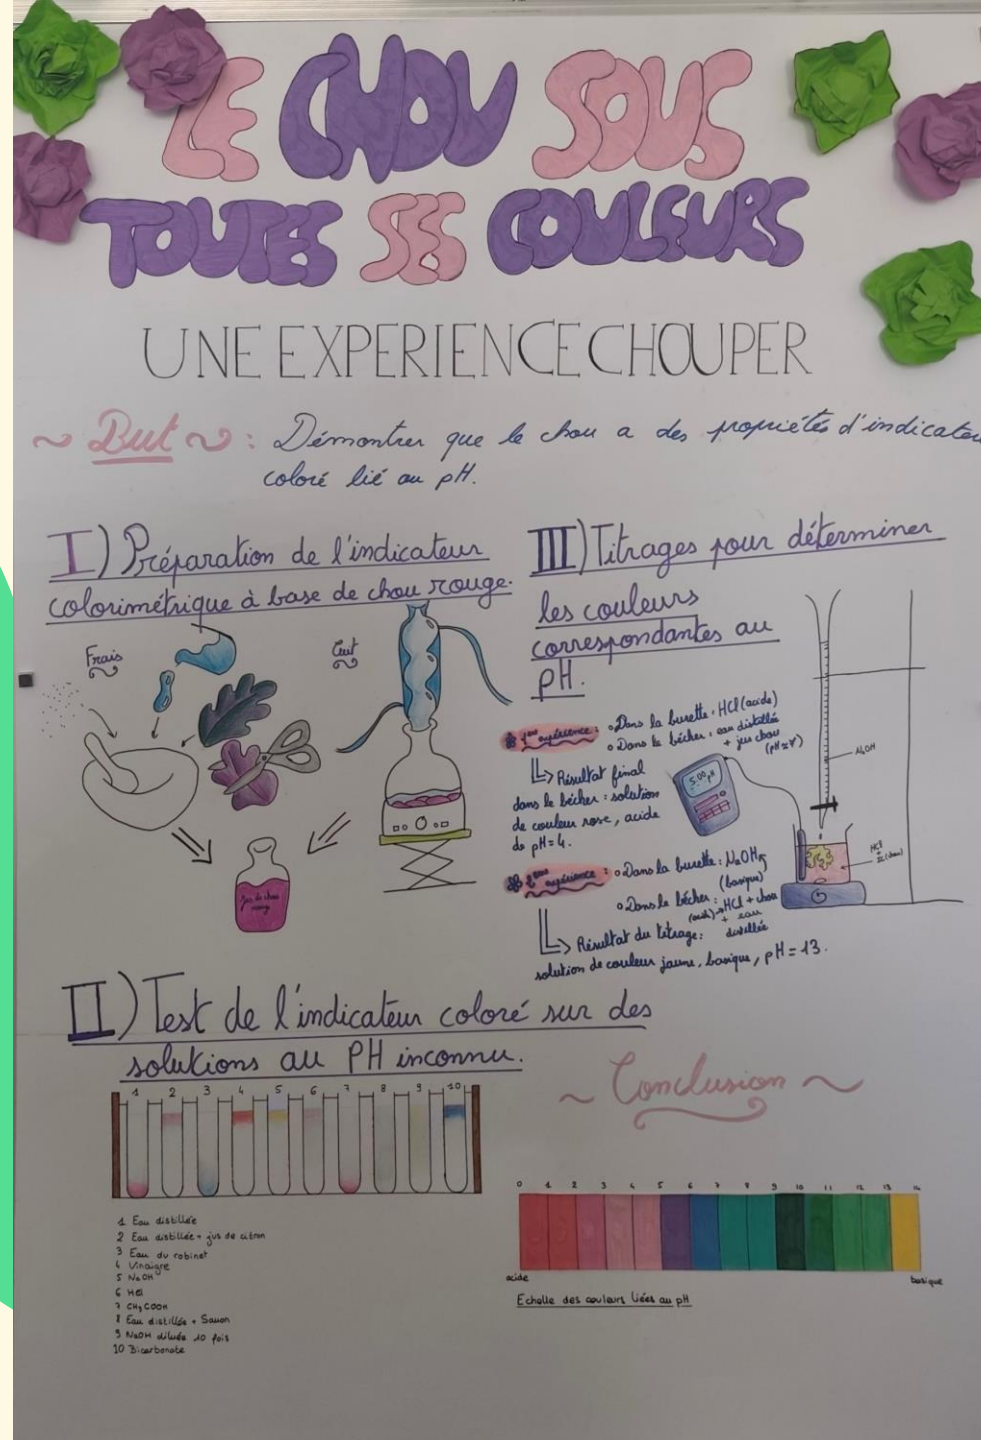 LE CHOU SOUS
TOUTES SES COULEURS
UNE EXPERIENCE CHOUPER
~ But ~ : Démontrer que le chou a des propriétés d'indicateu
coloré lié au pH.
I) Préparation de l'indicateur
colorimétrique à base de chou rouge.
Frais
Cuit
jus de chou
rouge
III) Titrages pour déterminer
les couleurs
correspondantes au
pH.
1ère expérience : Dans la burette : HCl (acide)
Dans le bécher : eau distillée
+ jus chou
(pH=7)
Résultat final
dans le bécher : solution
de couleur rose, acide
de pH=4.
5.00 pH
2ème expérience : Dans la burette : NaOH
(basique)
Dans le bécher :
(acide) HCl + chou
+ eau
distillée
Résultat du titrage :
solution de couleur jaune, basique, pH = 13.
NaOH
HCl
II) Test de l'indicateur coloré sur des
solutions au PH inconnu.
1 2 3 4 5 6 7 8 9 10
1 Eau distillée
2 Eau distillée + jus de citron
3 Eau du robinet
4 Vinaigre
5 NaOH
6 HCl
7 CH3COOH
8 Eau distillée + Savon
9 NaOH diluée 10 fois
10 Bicarbonate
~ Conclusion ~
0 1 2 3 4 5 6 7 8 9 10 11 12 13 14
acide
basique
Echelle des couleurs liées au pH